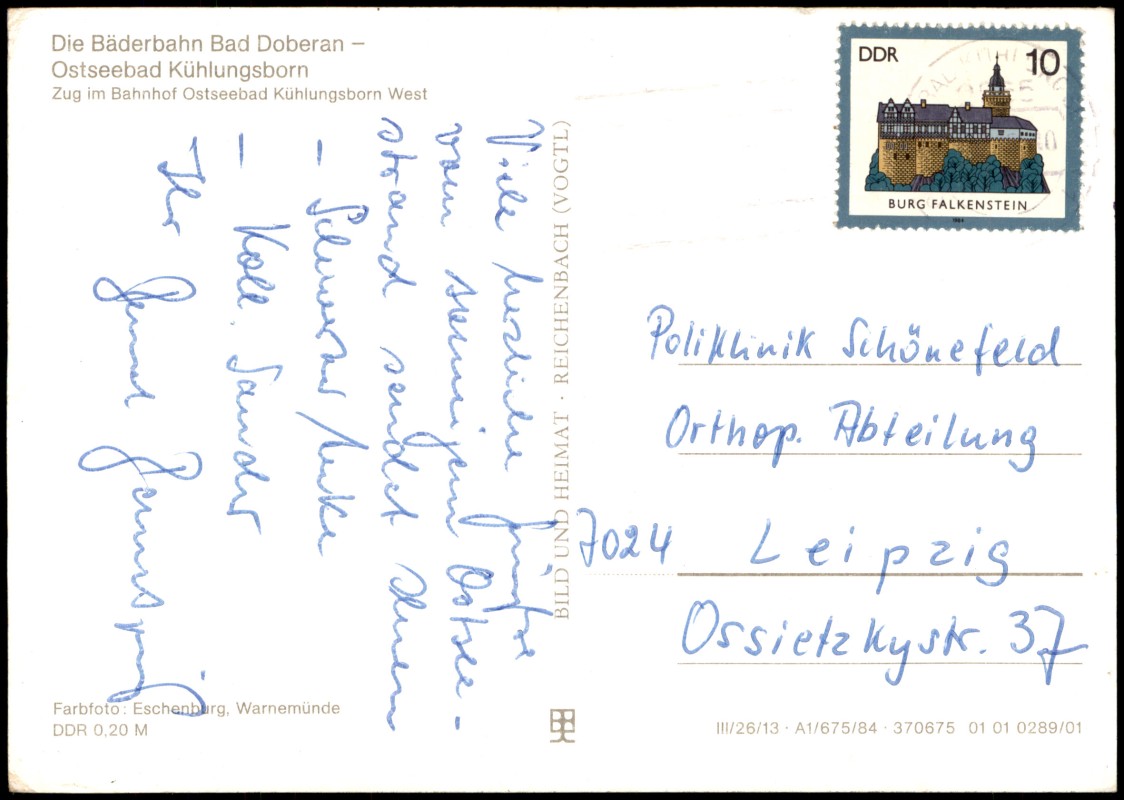 Die Bäderbahn Bad Doberan –
Ostseebad Kühlungsborn
Zug im Bahnhof Ostseebad Kühlungsborn West
Viele herzliche Grüße
vom sonnigen Ostsee-
strand sendet Ihnen
– Schwester Anke
– Koll. Sander
Ihr
BILD UND HEIMAT · REICHENBACH (VOGTL)
DDR 10
BURG FALKENSTEIN
1984
Poliklinik Schönefeld
Orthop. Abteilung
7024 Leipzig
Ossietzkystr. 37
Farbfoto: Eschenburg, Warnemünde
DDR 0,20 M
III/26/13 · A1/675/84 · 370675 01 01 0289/01